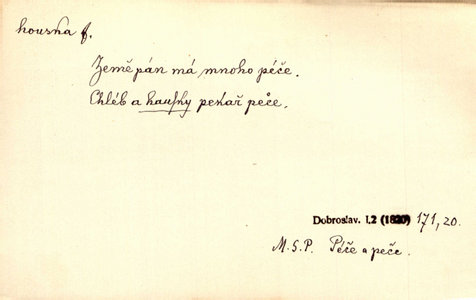 houska f.
Zeměpán má mnoho péče.
Chléb a hausky pekař peče.
Dobroslav. I,2 (1820) 171,20.
M.S.P. Péče a peče.